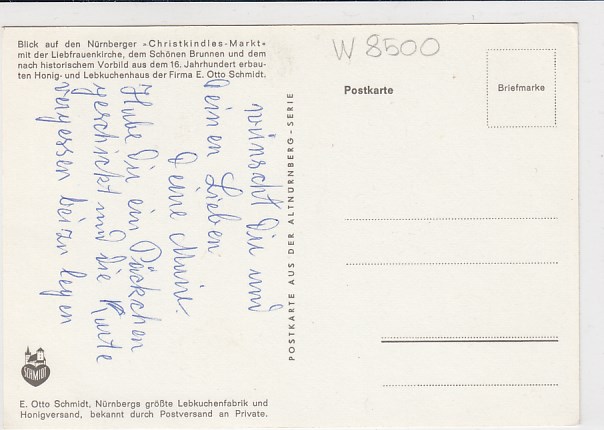 Blick auf den Nürnberger »Christkindles-Markt«
mit der Liebfrauenkirche, dem Schönen Brunnen und dem
nach historischem Vorbild aus dem 16. Jahrhundert erbau-
ten Honig- und Lebkuchenhaus der Firma E. Otto Schmidt.
W 8500
Postkarte
Briefmarke
wünscht Dir und
Deinen Lieben
Deine
Habe Dir ein Päckchen
geschickt und die Karte
vergessen beizulegen
POSTKARTE AUS DER ALTNÜRNBERG-SERIE
SCHMIDT
E. Otto Schmidt, Nürnbergs größte Lebkuchenfabrik und
Honigversand, bekannt durch Postversand an Private.